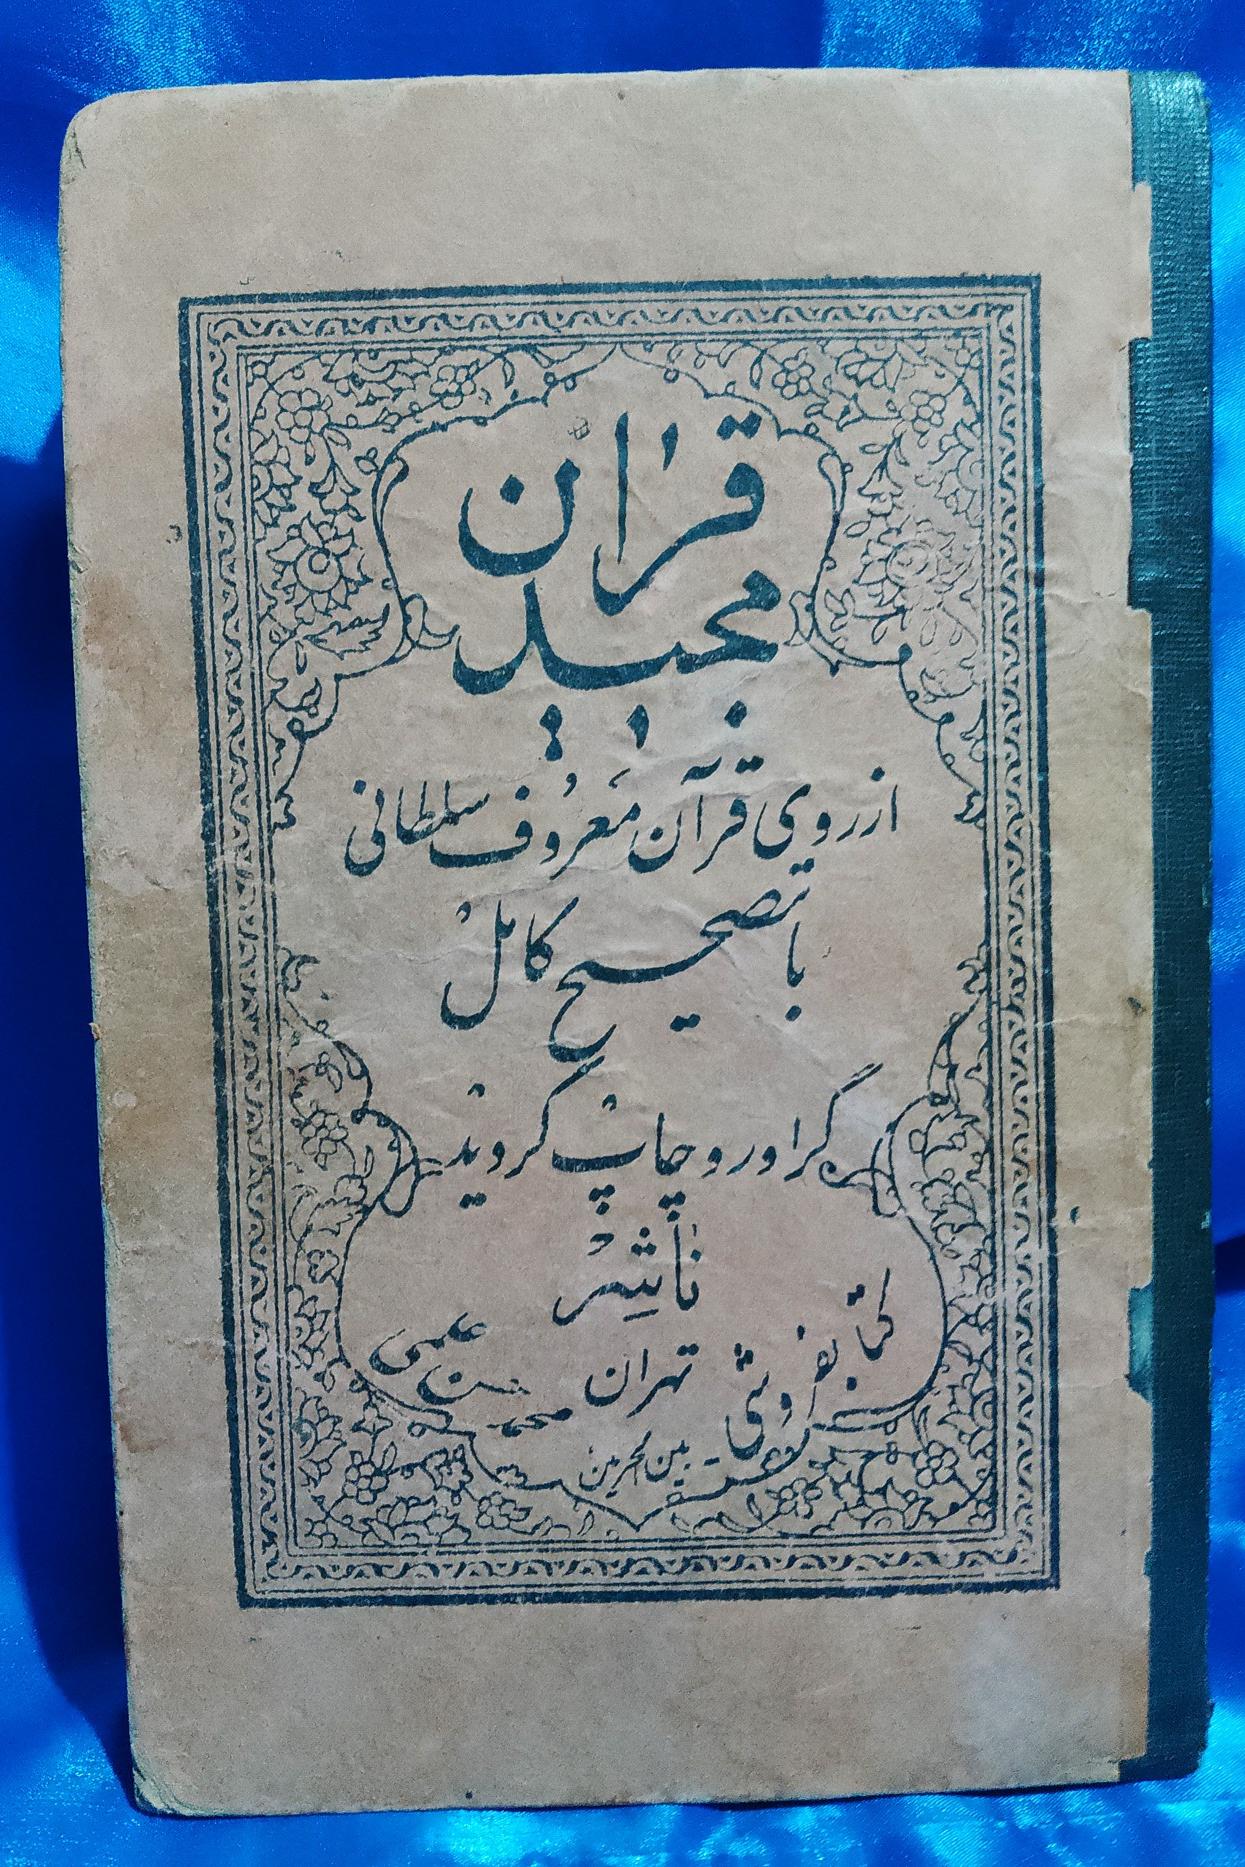 قرآن
مجید
از روی قرآن معروف سلطانی
با تصحیح کامل
گراور و چاپ گردید
ناشر
کتابفروشی تهران محمد حسن علمی
بین الحرمین